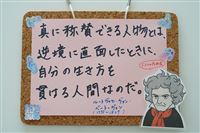 真に称賛できる人物とは、
逆境に直面したときに、
自分の生き方を
貫ける人間なのだ
ルートヴィヒ・ヴァン・
ベートーヴェン